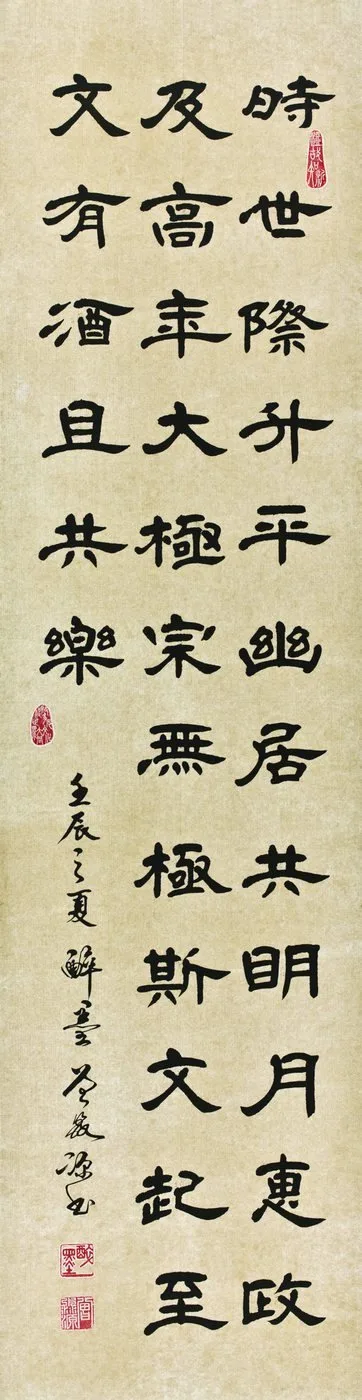 時世際升平幽居共明月惠政
及高年大極宗無極斯文起至
文有酒且共樂
壬辰之夏醉墨曾敬源书
醉墨